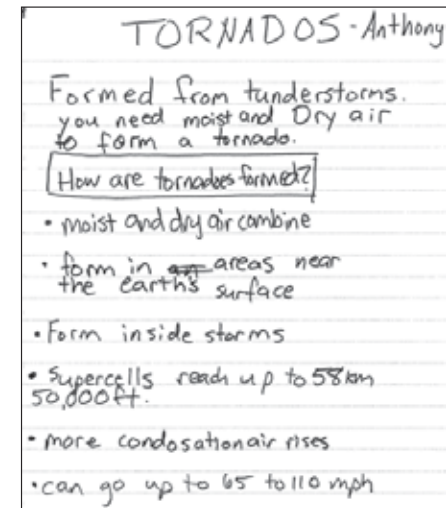 TORNADOS - Anthony
Formed from tunderstorms.
you need moist and Dry air
to form a tornado.
How are tornadoes formed?
• moist and dry air combine
• form in areas near
the earth's surface
• Form inside storms
• Supercells reach up to 58 km
50,000ft.
• more condosation air rises
• can go up to 65 to 110 mph